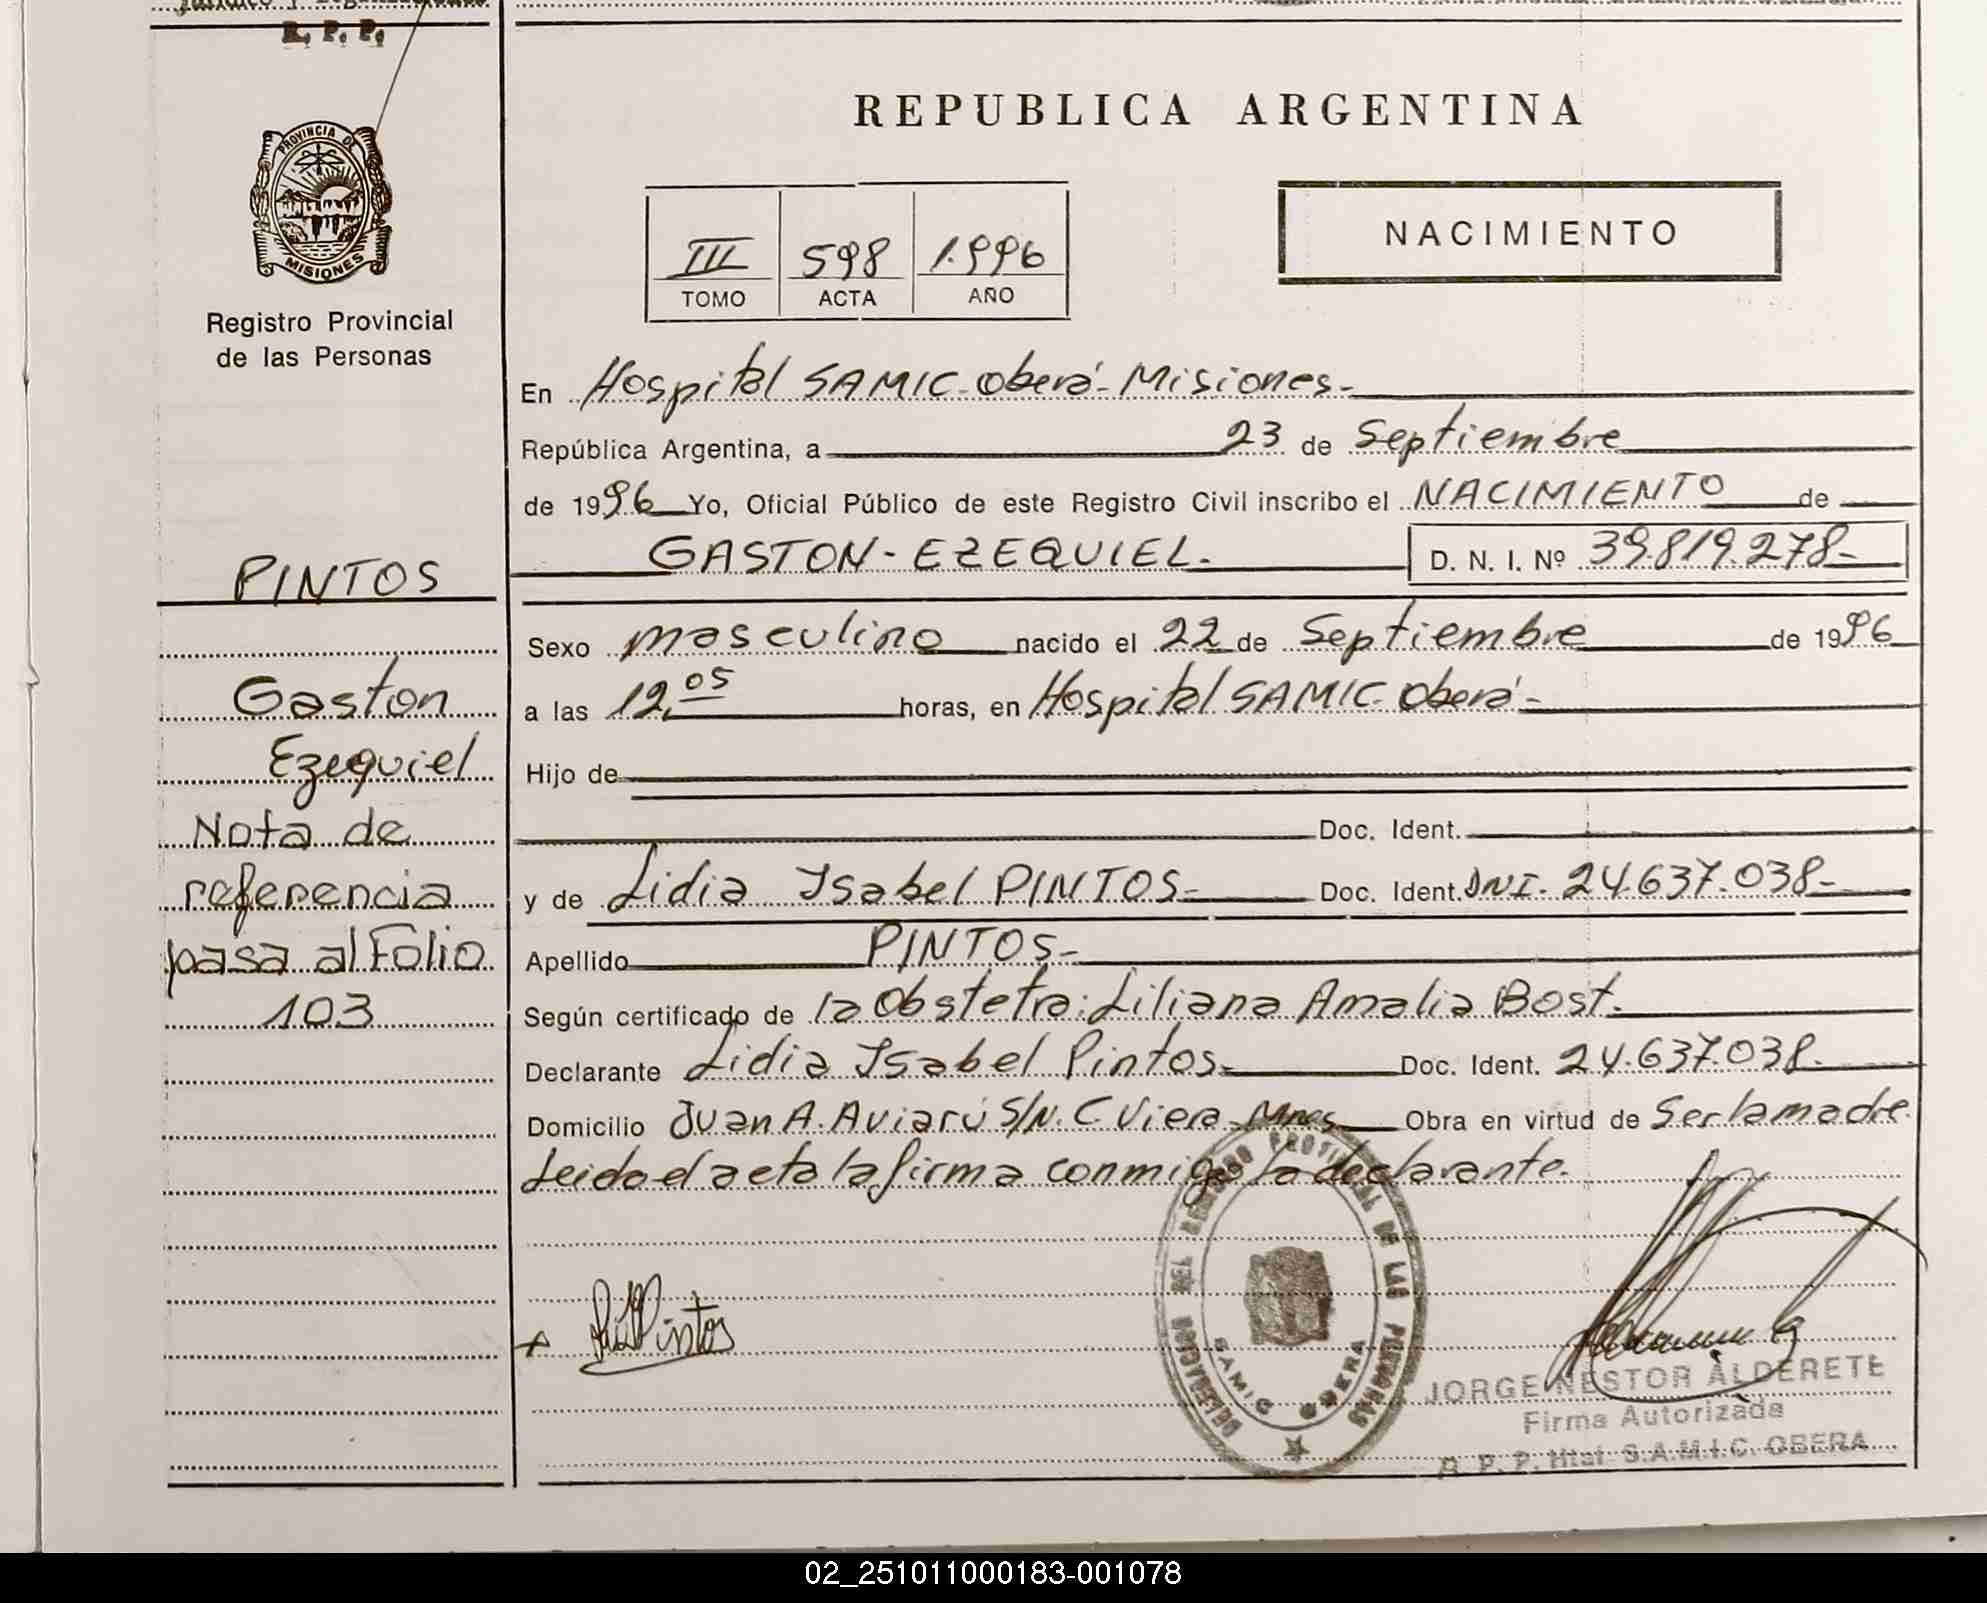 R. P. P.
PROVINCIA DE
MISIONES
Registro Provincial
de las Personas
PINTOS
Gaston
Ezequiel
Nota de
referencia
pasa al Folio
103
REPUBLICA ARGENTINA
III 598 1.996
TOMO ACTA AÑO
NACIMIENTO
En Hospital SAMIC-Oberá-Misiones-
República Argentina, a 23 de Septiembre
de 1996 Yo, Oficial Público de este Registro Civil inscribo el NACIMIENTO de
GASTON-EZEQUIEL- D. N. I. Nº 39.819.278-
Sexo masculino nacido el 22 de Septiembre de 1996
a las 12,05 horas, en Hospital SAMIC-Oberá-
Hijo de
Doc. Ident.
y de Lidia Isabel PINTOS- Doc. Ident. DNI- 24.637.038-
Apellido PINTOS-
Según certificado de la Obstetra: Liliana Amalia Bost.
Declarante Lidia Isabel Pintos- Doc. Ident. 24.637.038-
Domicilio Juan A. Aviarú S/N. C. Viera Mnes Obra en virtud de Ser la madre.
Leida el acta la firma conmigo la declarante.
DELEGACION DEL REGISTRO PROVINCIAL DE LAS PERSONAS
SAMIC OBERA
+ Pintos
JORGE NESTOR ALDERETE
Firma Autorizada
R. P. P. Htal S.A.M.I.C. OBERA
02_251011000183-001078